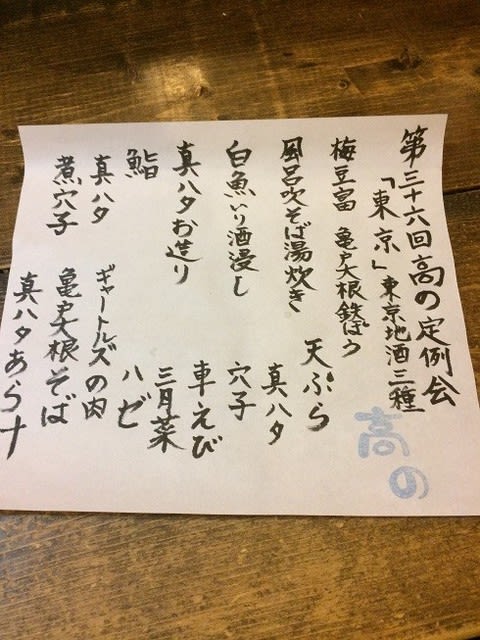 第三十六回高の定例会
「東京」東京地酒三種
梅豆富 亀戸大根鉄ぽう
風呂吹そば湯炊き
白魚いり酒浸し
真ハタお造り
鮨
真ハタ
煮穴子
天ぷら
真ハタ
穴子
車えび
三月菜
ハゼ
ギャートルズの肉
亀戸大根そば
真ハタあら汁
高の